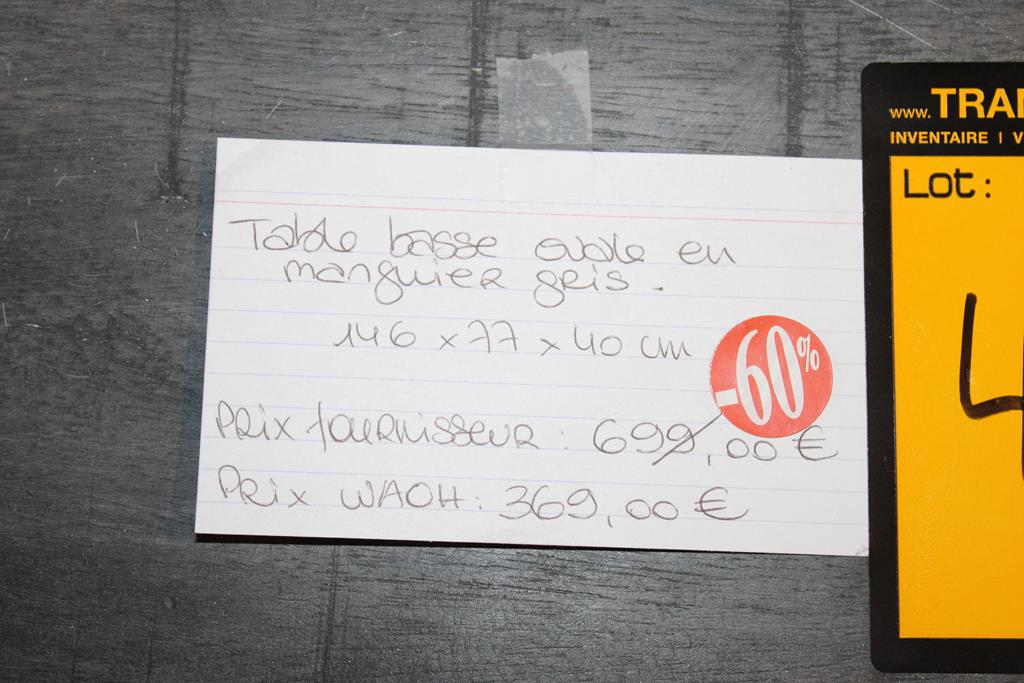 Table basse ovale en
manguier gris.
146 x 77 x 40 cm
-60%
Prix fournisseur : 699,00 €
Prix WAOH : 369,00 €
www.
INVENTAIRE |
Lot :
4